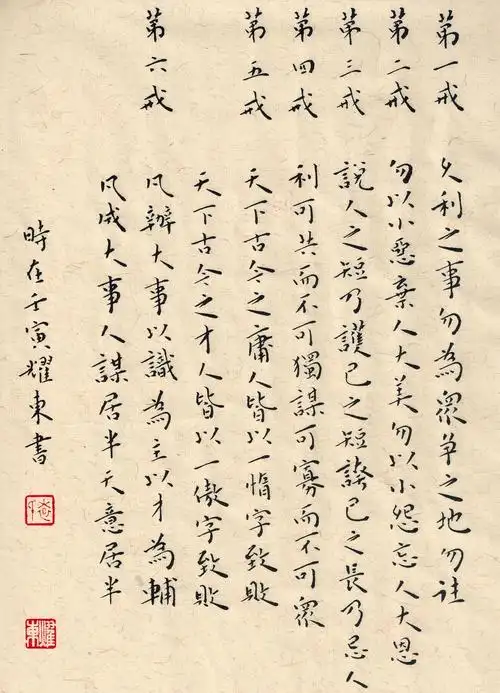 第一戒 久利之事勿為衆争之地勿往
第二戒 勿以小惡棄人大美勿以小怨忘人大恩
第三戒 説人之短乃護己之短誇己之長乃忌人
第四戒 利可共而不可獨謀可寡而不可衆
第五戒 天下古今之庸人皆以一惰字致敗
天下古今之才人皆以一傲字致敗
第六戒 凡辦大事以識為主以才為輔
凡成大事人謀居半天意居半
時在壬寅耀東書
耀東